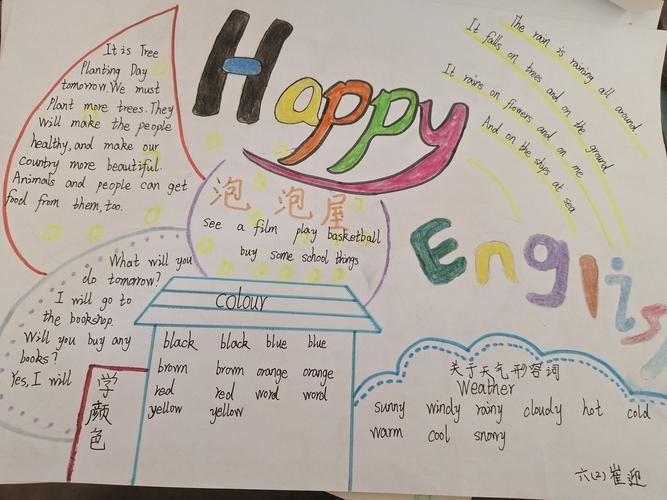 Happy
English
It is Tree
Planting Day
tomorrow. We must
Plant more trees. They
will make the people
healthy, and make our
country more beautiful.
Animals and people can get
food from them, too.
The rain is raining all around
It falls on trees and on the ground
It rains on flowers and on me
And on the ships at sea
泡泡屋
see a film play basketball
buy some school things
What will you
do tomorrow?
I will go to
the bookshop.
Will you buy any
books?
Yes, I will
学颜色
colour
black black blue blue
brown brown orange orange
red red word word
yellow yellow
关于天气形容词
Weather
sunny windy rainy cloudy hot cold
warm cool snowy
六(2) 崔迎